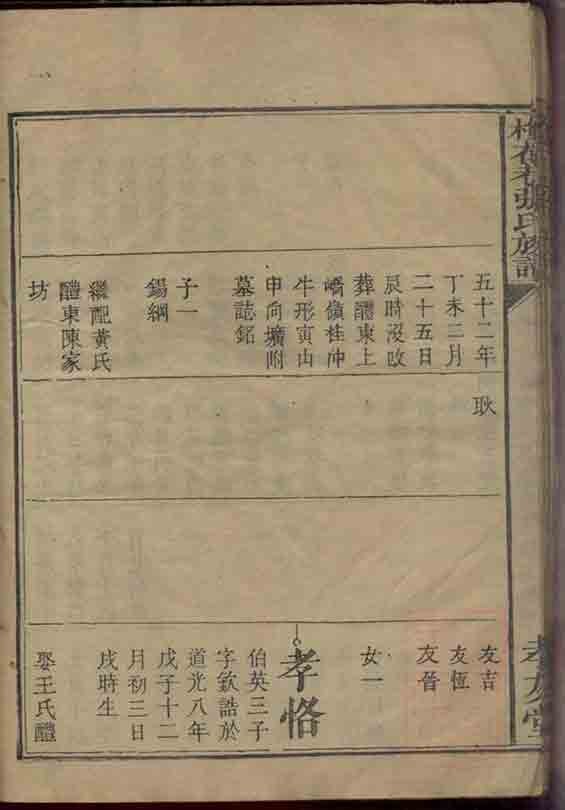 張氏族譜
五十二年
丁未二月
二十五日
辰時沒改
葬醴東上
嶠嶺桂冲
牛形寅山
申向壙附
墓誌銘
子一
錫綱
繼配黃氏
醴東陳家
坊
耿
友吉
友恆
友晉
女一
孝恪
伯英三子
字欽誥於
道光八年
戊子十二
月初三日
戌時生
娶王氏醴
孝友堂